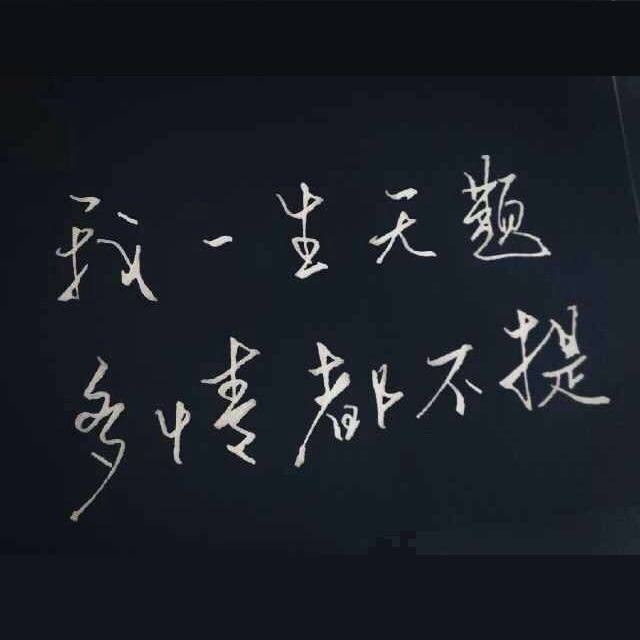 我一生无题
多情都不提